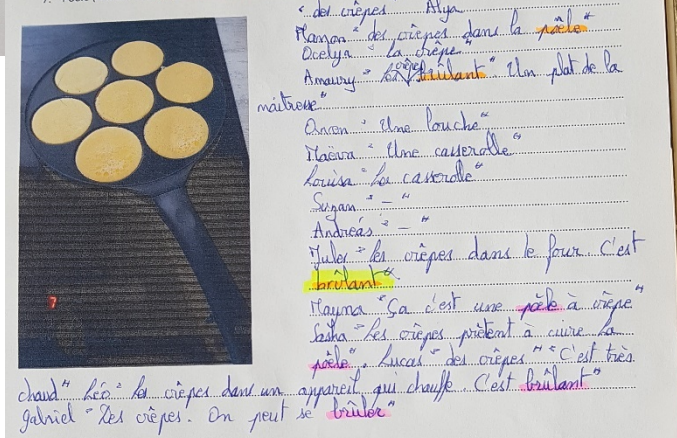 " des crêpes Alya
Manon " des crêpes dans la poêle "
Ocelyn " la crêpe "
Amaury " crêpe brûlant " Un plat de la
maîtresse "
" Une louche "
Maëva " Une casserolle "
Louisa " La casserolle "
Suzan " – "
Andréas " – "
Jules " les crêpes dans le four C'est
brûlant "
Mayna " Ça c'est une poêle à crêpe "
Sasha " Les crêpes prêtent à cuire La
poêle ". Lucas " des crêpes " " C'est très
chaud " Léo " les crêpes dans un appareil qui chauffe. C'est brûlant "
Gabriel " Des crêpes. On peut se brûler "
?